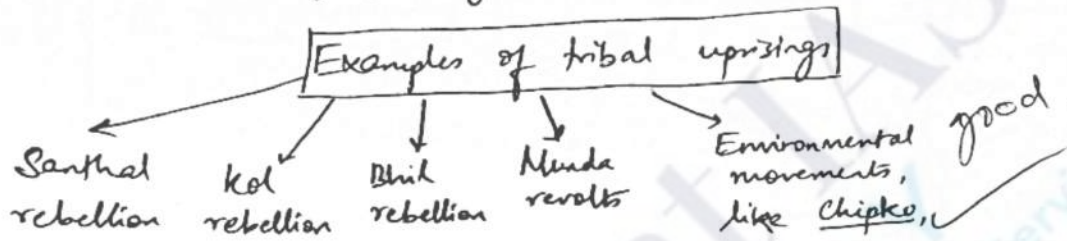 Examples of tribal uprisings
Santhal
rebellion
Kol
rebellion
Bhil
rebellion
Munda
revolts
Environmental
movements,
like Chipko,
good